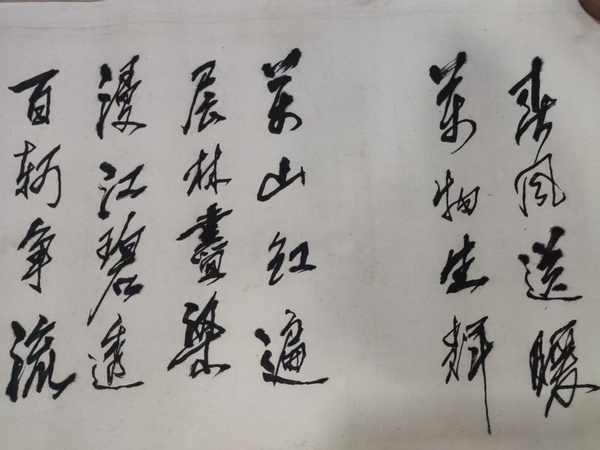 春风送暖
萬物生辉
萬山红遍
层林盡染
漫江碧透
百舸争流